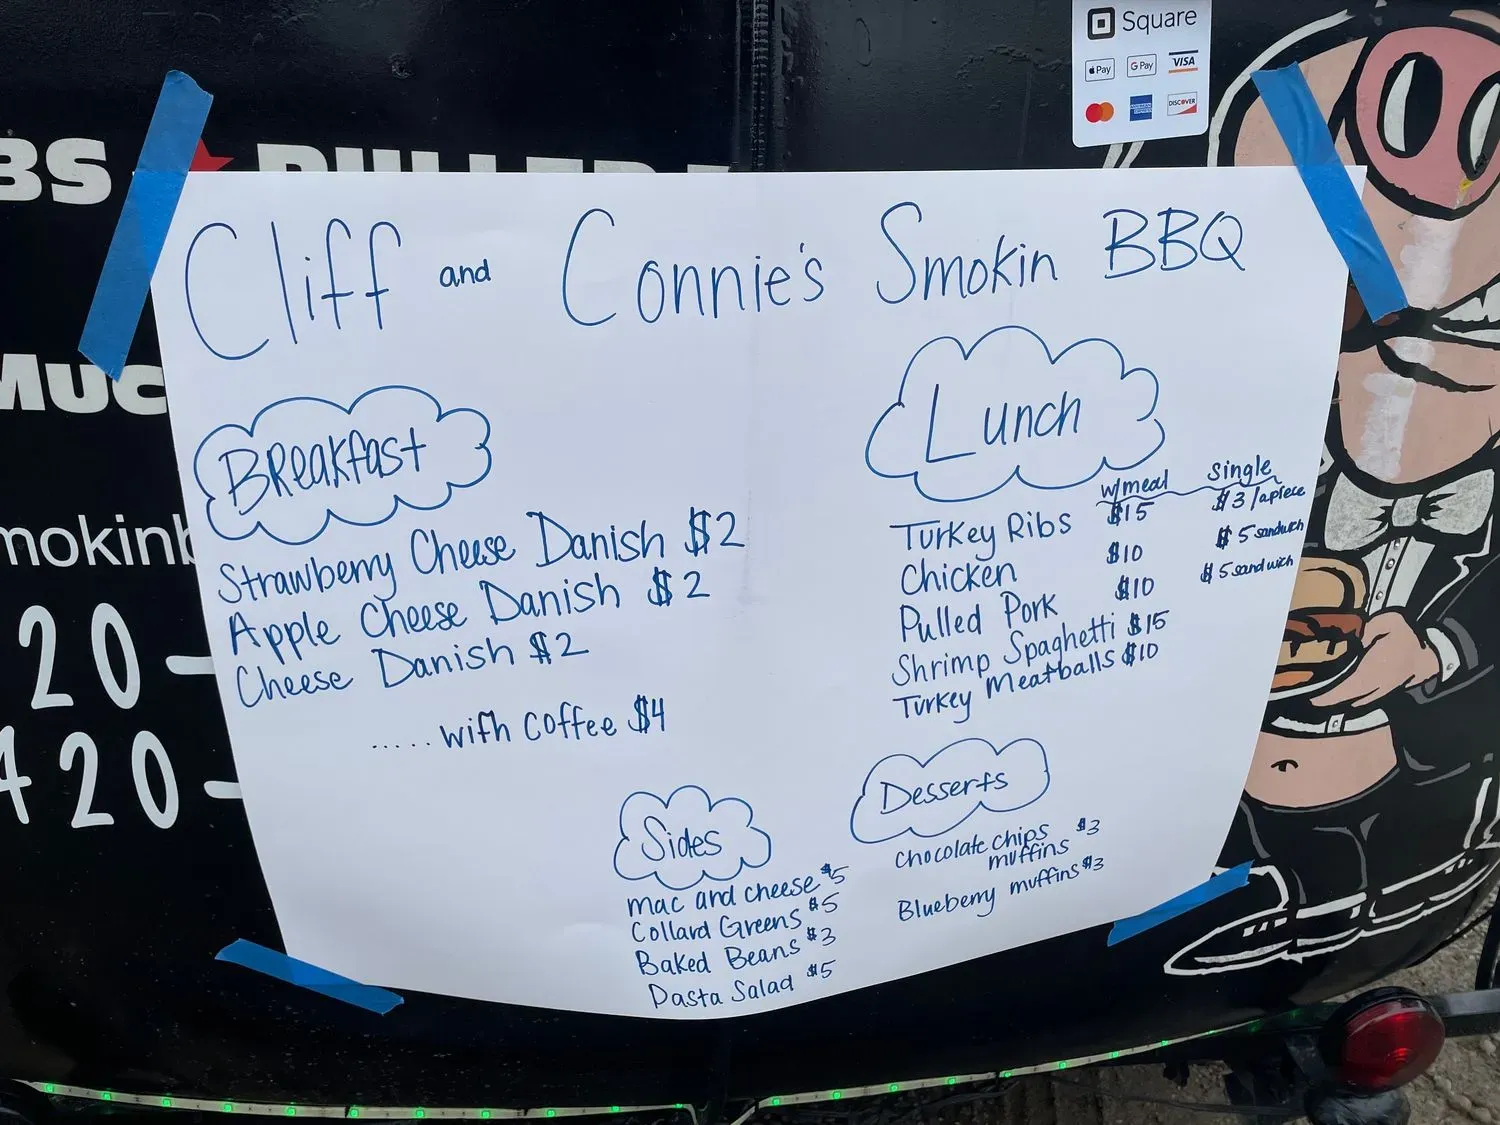 Square
Pay
G Pay
VISA
AMERICAN EXPRESS
DISCOVER
BS
MUC
mokinb
20-
420-
Cliff and Connie's Smokin BBQ
Breakfast
Strawberry Cheese Danish $2
Apple Cheese Danish $2
Cheese Danish $2
..... with Coffee $4
Lunch
w/meal single
Turkey Ribs $15 $3/apiece
Chicken $10 $5 sandwich
Pulled Pork $10 $5 sandwich
Shrimp Spaghetti $15
Turkey Meatballs $10
Sides
Mac and cheese $5
Collard Greens $5
Baked Beans $3
Pasta Salad $5
Desserts
Chocolate chips
muffins $3
Blueberry muffins $3